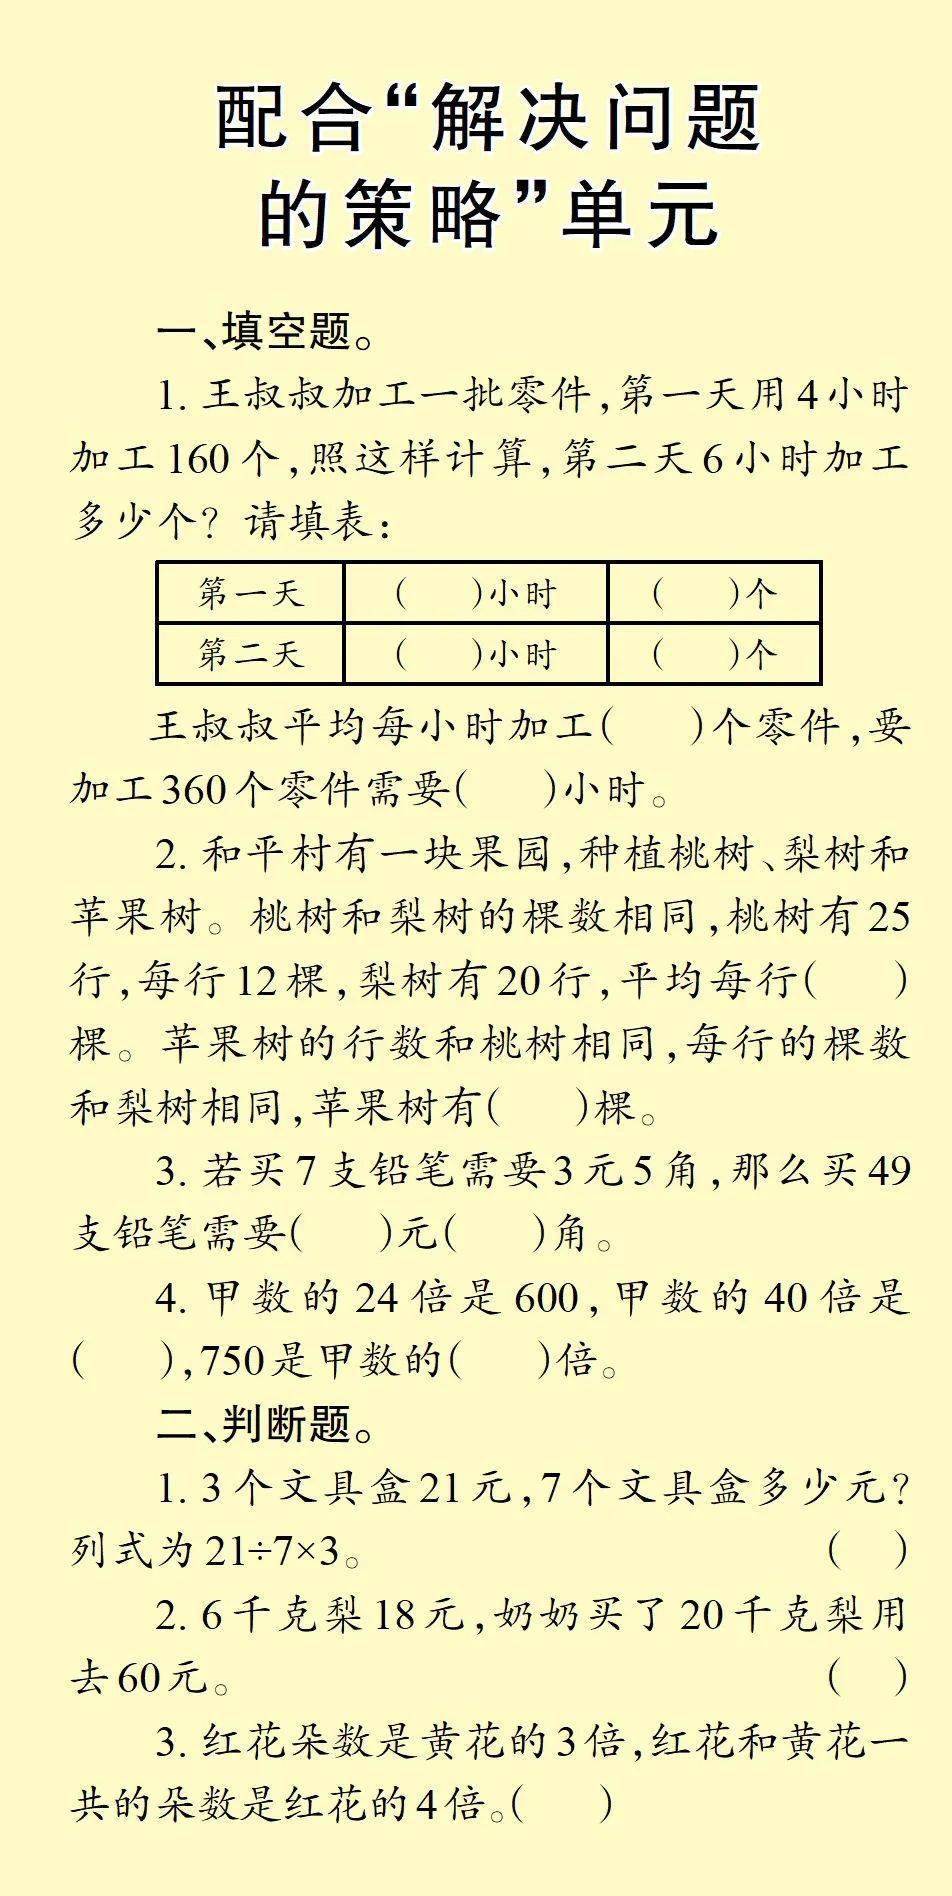 配合“解决问题
的策略”单元
一、填空题。
1. 王叔叔加工一批零件,第一天用4小时
加工160个,照这样计算,第二天6小时加工
多少个? 请填表:
第一天 (  )小时 (  )个
第二天 (  )小时 (  )个
王叔叔平均每小时加工(  )个零件,要
加工360个零件需要(  )小时。
2. 和平村有一块果园,种植桃树、梨树和
苹果树。桃树和梨树的棵数相同,桃树有25
行,每行12棵,梨树有20行,平均每行(  )
棵。苹果树的行数和桃树相同,每行的棵数
和梨树相同,苹果树有(  )棵。
3. 若买7支铅笔需要3元5角,那么买49
支铅笔需要(  )元(  )角。
4. 甲数的24倍是600,甲数的40倍是
(  ),750是甲数的(  )倍。
二、判断题。
1. 3个文具盒21元,7个文具盒多少元?
列式为21÷7×3。 (  )
2. 6千克梨18元,奶奶买了20千克梨用
去60元。 (  )
3. 红花朵数是黄花的3倍,红花和黄花一
共的朵数是红花的4倍。(  )